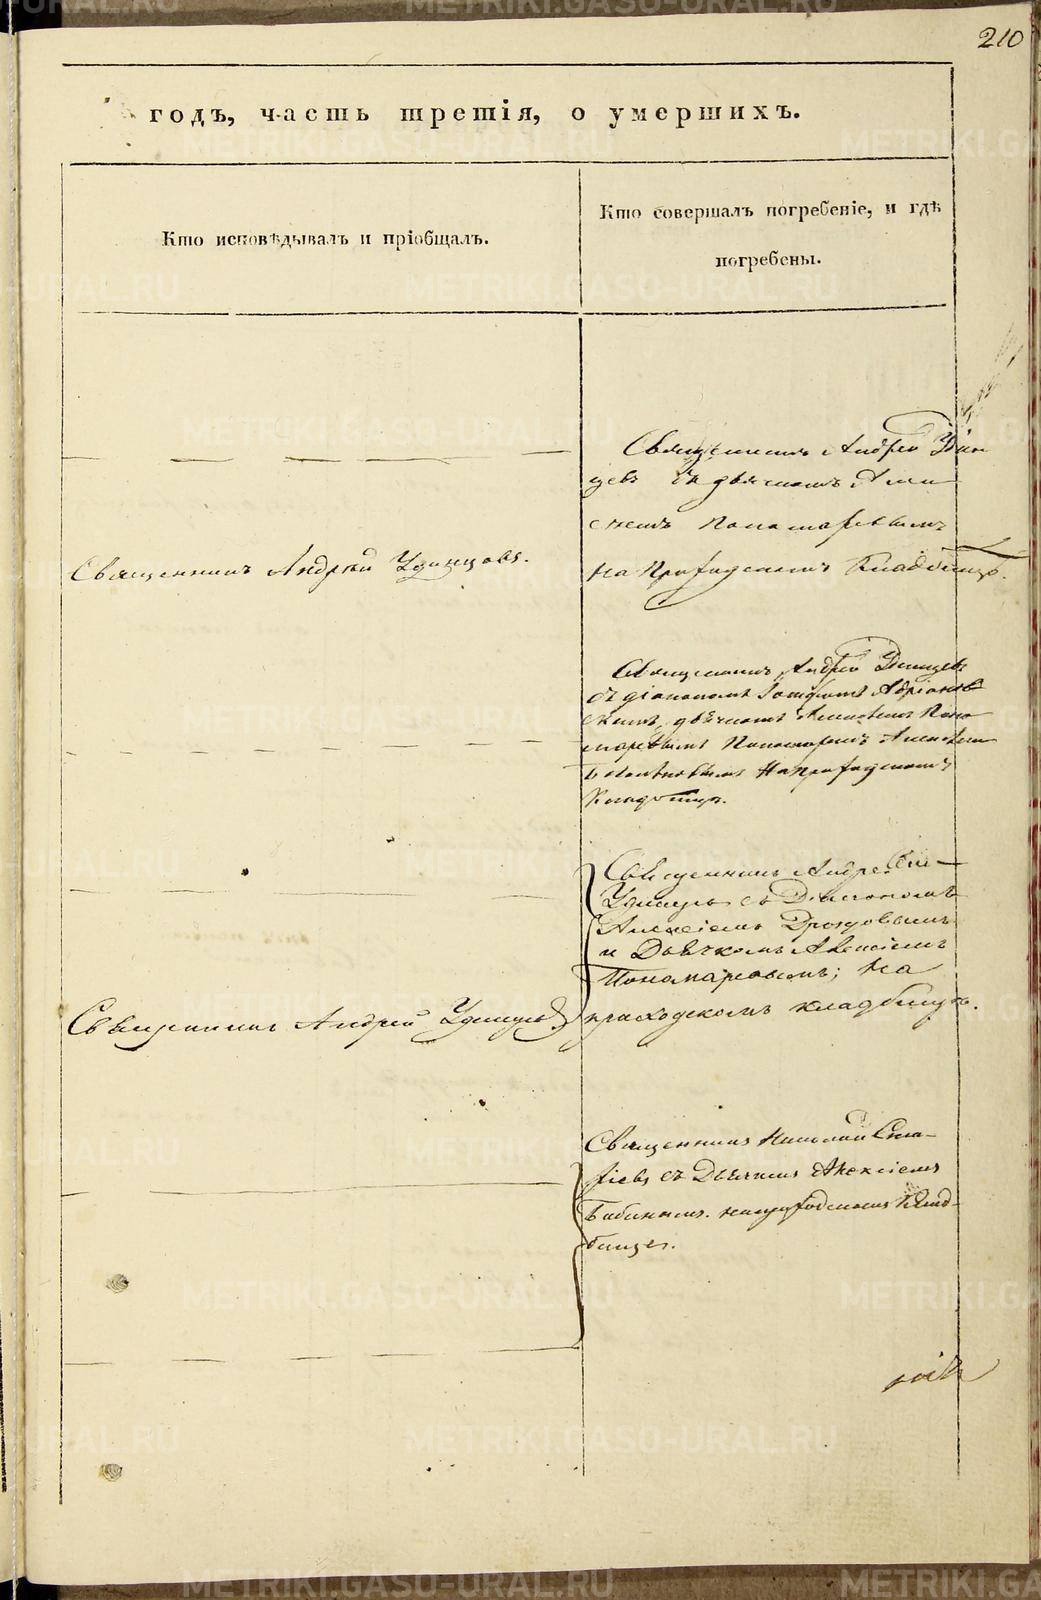 210
годъ, часть третія, о умершихъ.
Кто исповѣдывалъ и пріобщалъ.
Кто совершалъ погребеніе, и гдѣ
погребены.
Священникъ Андрей Удин
цевъ съ дьячкомъ Алек
сѣемъ Пономаревымъ
на Приходскомъ Кладбищѣ.
Священникъ Андрей Удинцовъ.
Священникъ Андрей Удинцевъ
съ діакономъ
скимъ, дьячкомъ Алексѣемъ Поно
маревымъ Пономаремъ Алексѣемъ
на приходскомъ
Кладбищѣ.
Священникъ Андрей
Удинцевъ съ Діакономъ
Алексіемъ Дроздовымъ
и Дьячкомъ Алексіемъ
Пономаревымъ; на
приходскомъ кладбищѣ.
Священникъ Андрей Удинцевъ
Священникъ Николай
съ Дьячкомъ Алексіемъ
Бабинымъ. на приходскомъ Клад-
бищѣ.
METRIKI.GASO-URAL.RU